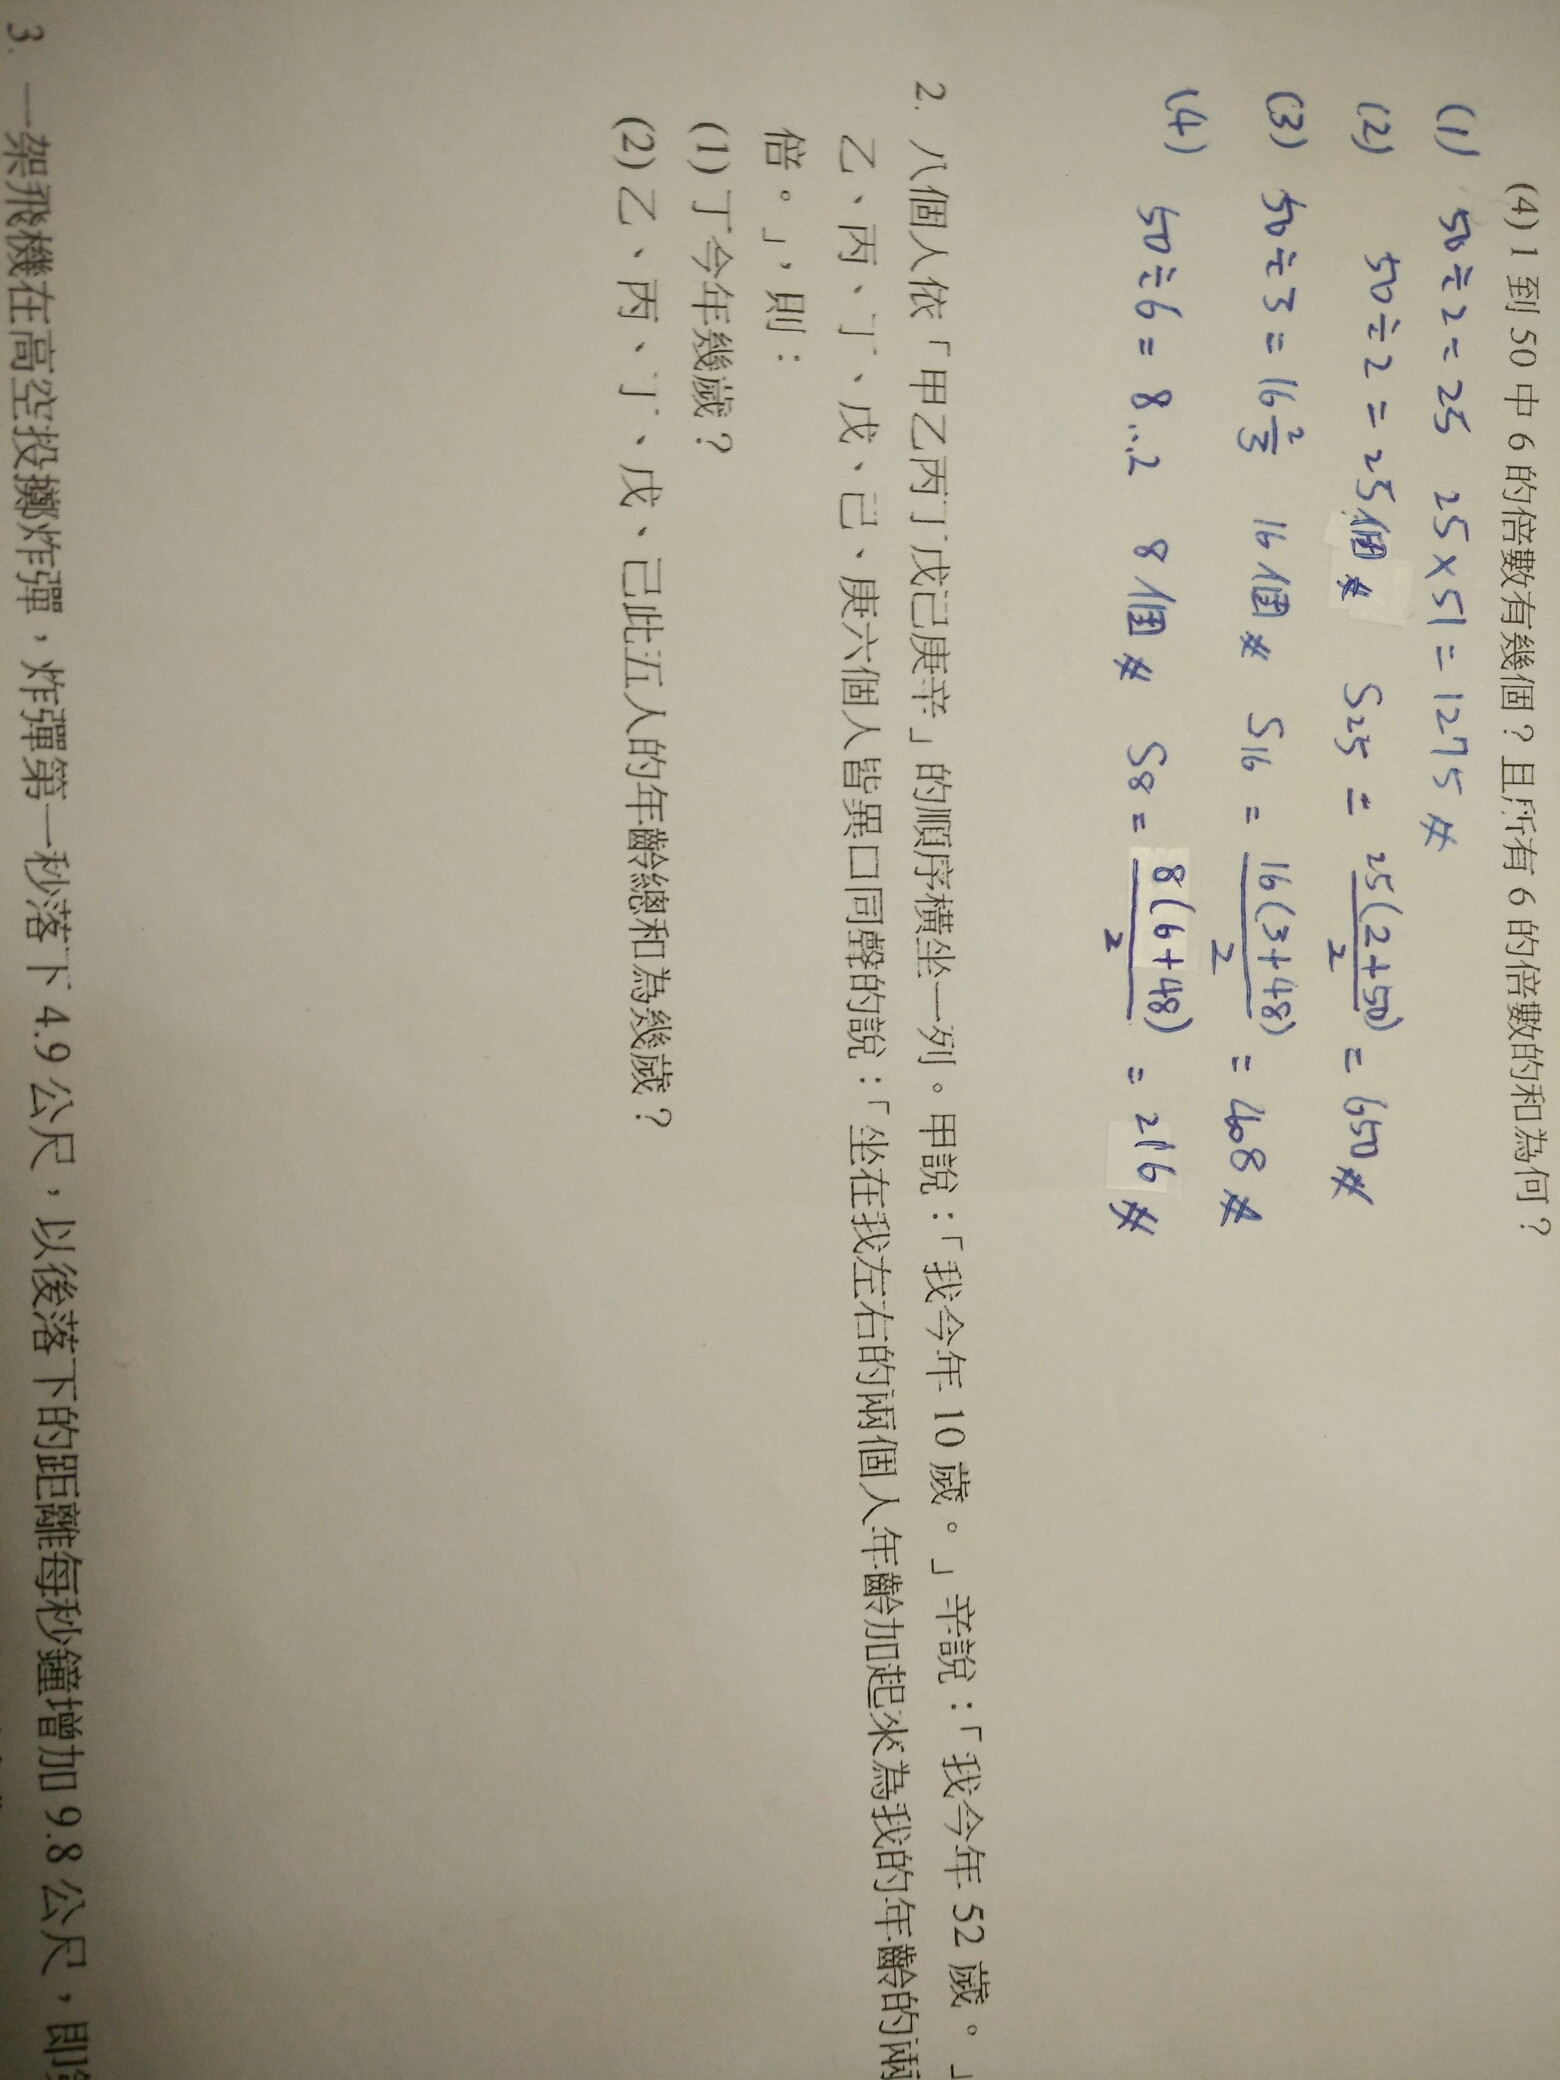 (4) 1 到 50 中 6 的倍數有幾個？且所有 6 的倍數的和為何？
(1) 50÷2=25 25×51=1275 #
(2) 50÷2=25個 # S25 = 25(2+50)/2 = 650 #
(3) 50÷3=16 2/3 16個 # S16 = 16(3+48)/2 = 408 #
(4) 50÷6=8...2 8個 # S8 = 8(6+48)/2 = 216 #
2. 八個人依「甲乙丙丁戊己庚辛」的順序橫坐一列。甲說：「我今年 10 歲。」辛說：「我今年 52 歲。」
乙、丙、丁、戊、己、庚六個人皆異口同聲的說：「坐在我左右的兩個人年齡加起來為我的年齡的兩
倍。」，則：
(1) 丁今年幾歲？
(2) 乙、丙、丁、戊、己此五人的年齡總和為幾歲？
3. 一架飛機在高空投擲炸彈，炸彈第一秒落下 4.9 公尺，以後落下的距離每秒鐘增加 9.8 公尺，即